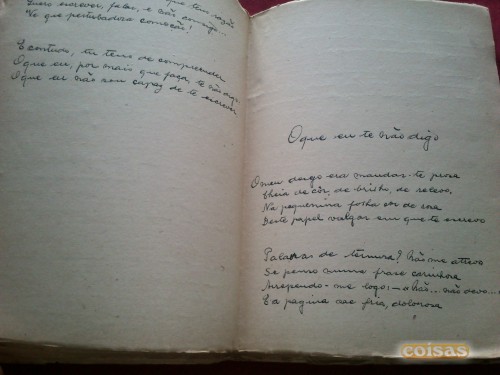 que tem razão
Quero escrever, falar, e não consigo
Vê que perturbadora comoção!
E contudo, tu tens de compreender
O que eu, por mais que faça, te não digo.
O que eu não sou capaz de te escrever
O que eu te não digo
O meu desejo era mandar-te prosa
Cheia de côr, de brilho, de relevo,
Na pequenina folha côr de rosa
Deste papel vulgar em que te escrevo
Palavras de ternura? Não me atrevo
Se penso numa frase carinhosa
Arrependo-me logo; — Não... não devo...
E a pagina sae fria, dolorosa
coisas